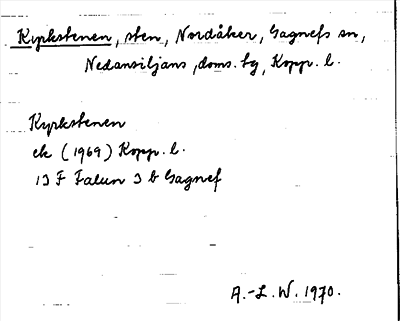 Kyrkstenen, sten, Nordåker, Gagnefs sn,
Nedansiljans, doms. tg, Kopp. l.
Kyrkstenen
ek (1969) Kopp. l.
13 F Falun 3 b Gagnef
A.-L. W. 1970.